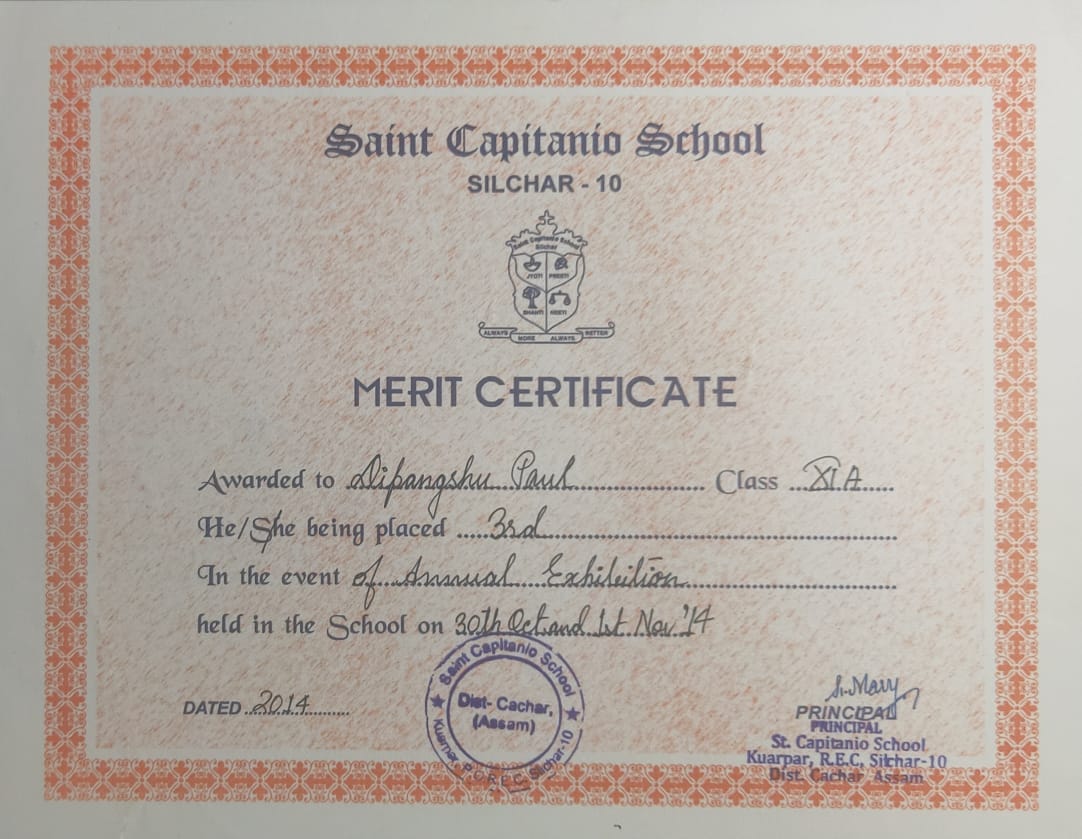 Saint Capitanio School
SILCHAR - 10
Saint Capitanio School
Silchar
JYOTI PREETI
SHANTI NEETI
ALWAYS MORE ALWAYS BETTER
MERIT CERTIFICATE
Awarded to Dipangshu Paul Class XI A
He/She being placed 3rd
In the event of Annual Exhibition
held in the School on 30th Oct and 1st Nov '14
Saint Capitanio School
Dist- Cachar,
(Assam)
Silchar-10
DATED 2014
S. Mary
PRINCIPAL
PRINCIPAL
St. Capitanio School
Kuarpar, R.E.C, Silchar-10
Dist. Cachar Assam